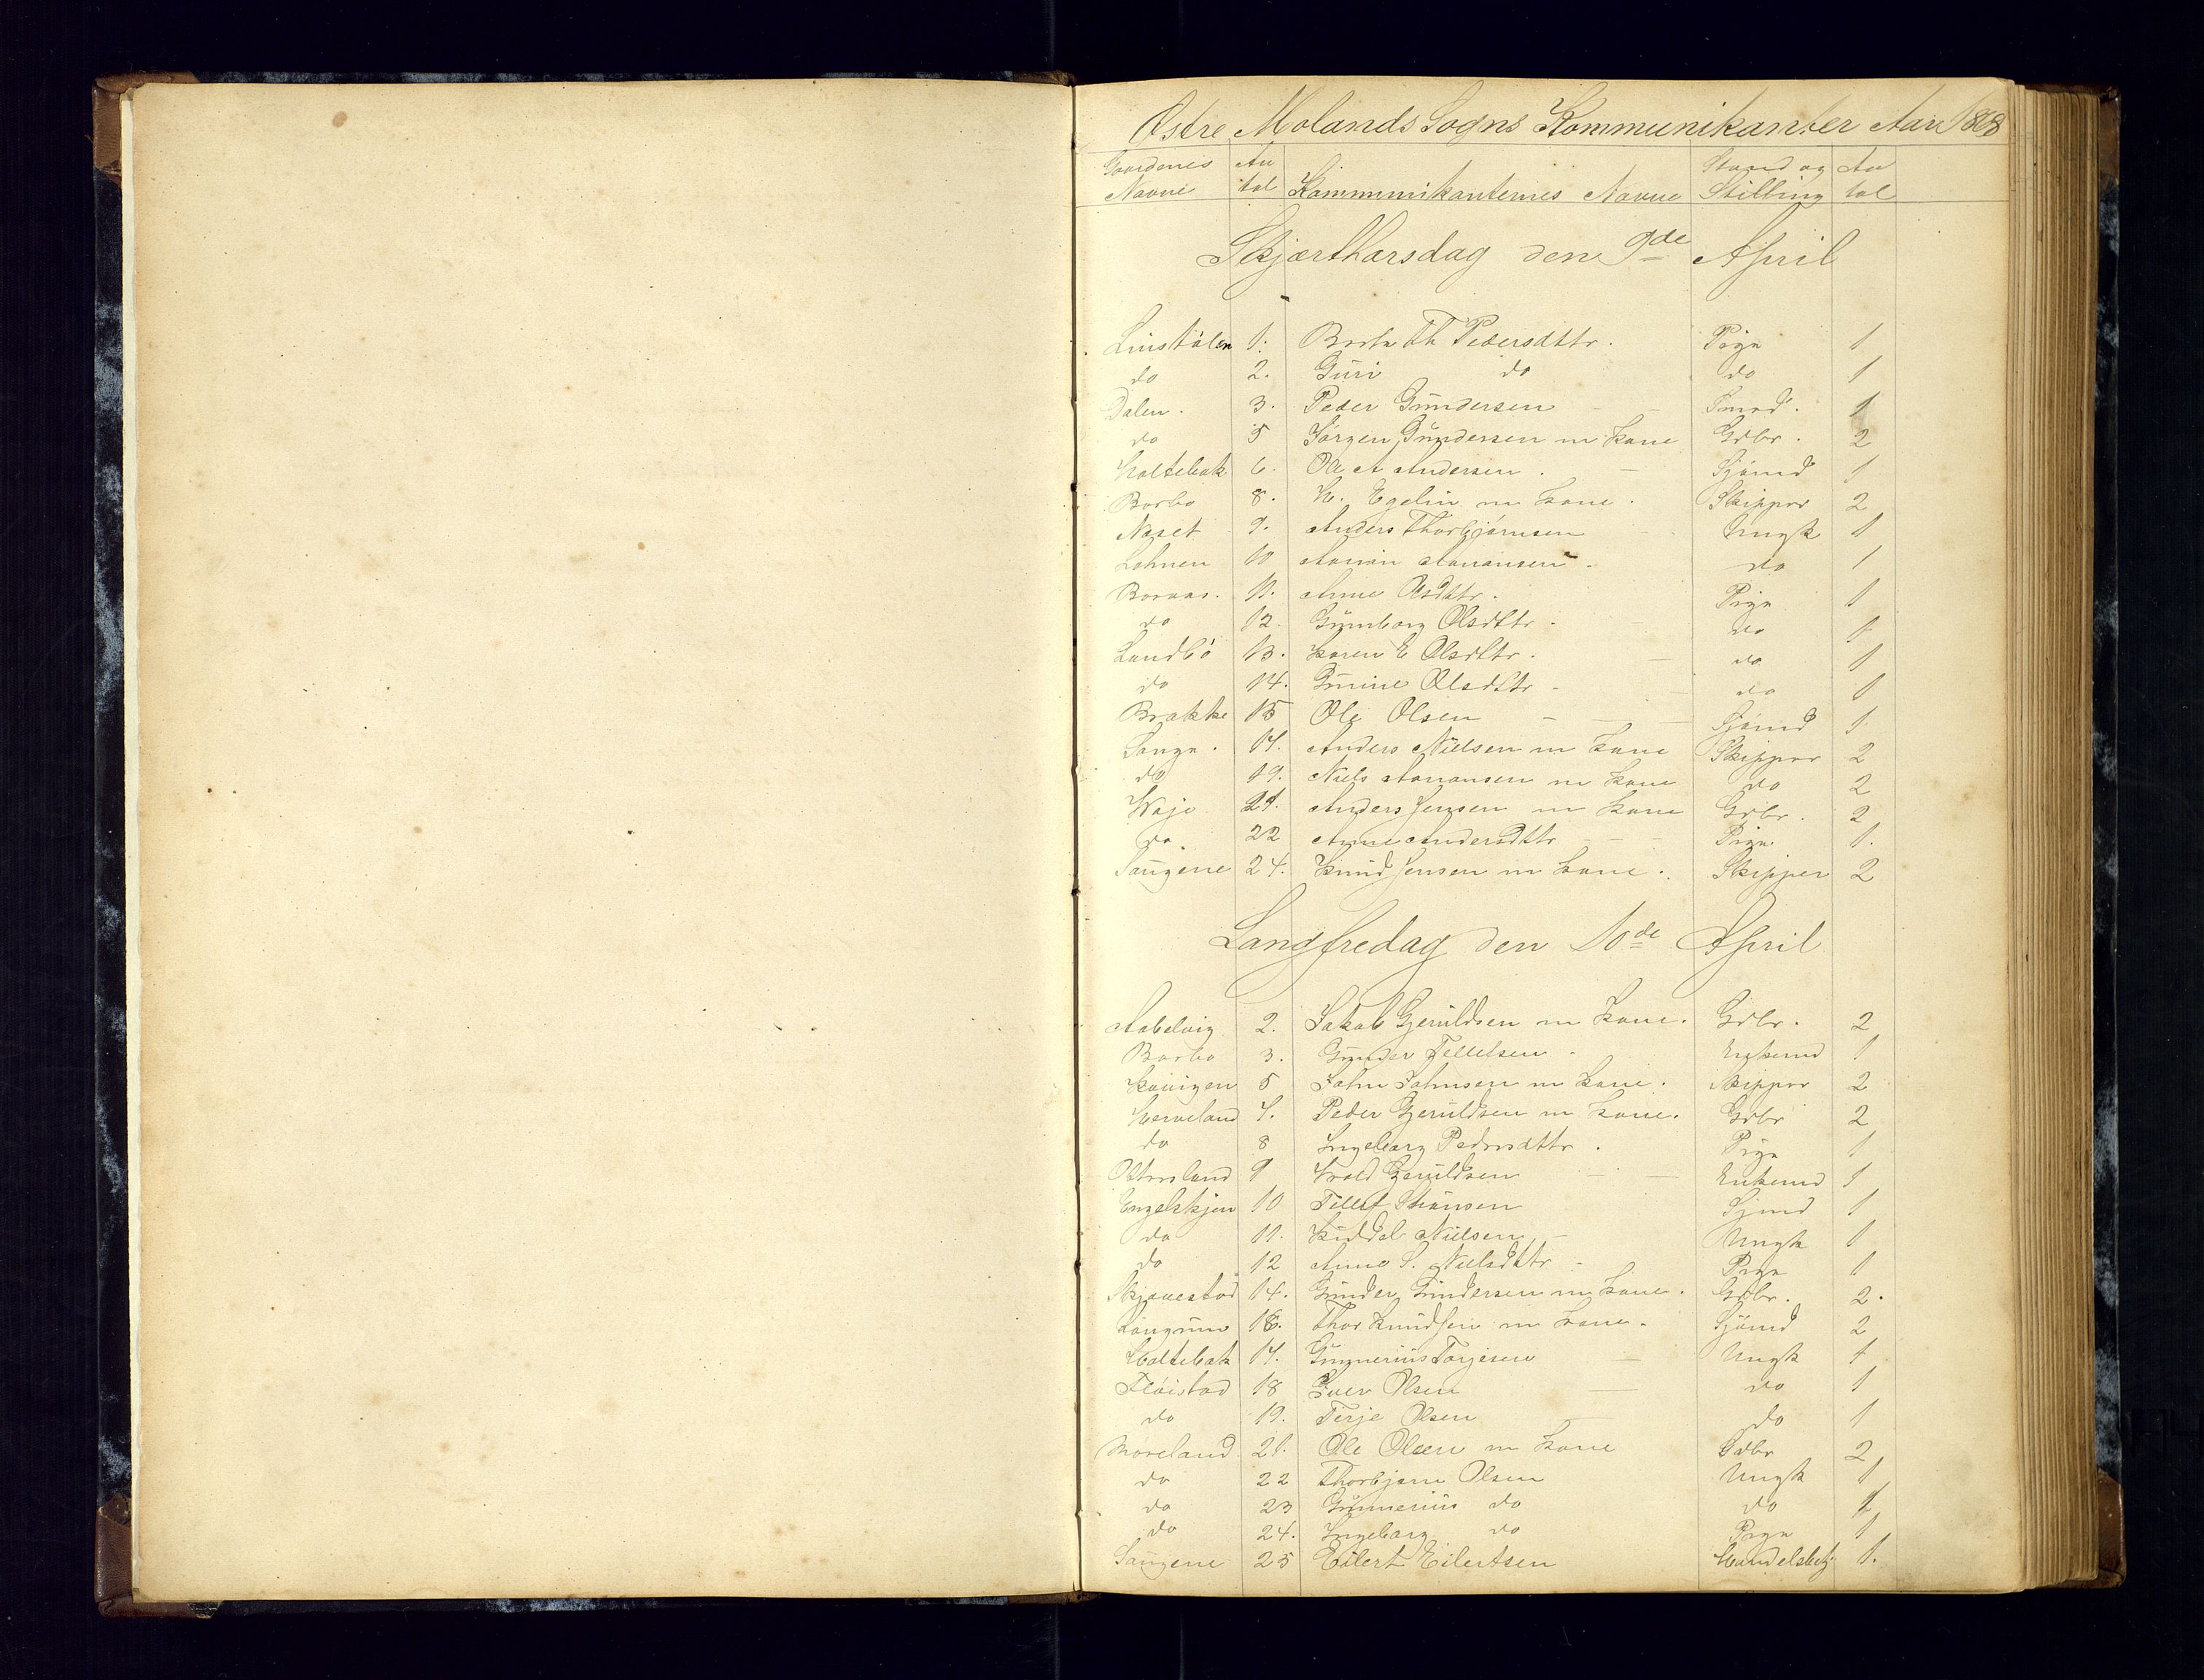 Østre Molands Sogns Kommunikanter Aar 1868
Gaardenes Navne An tal Kommunikanternes Navne Stand og Stilling An tal
Skjærthorsdag den 9de April
Linstølen 1. Berte Th Pedersdttr. Pige 1
do 2. Guri do do 1
Dalen. 3. Peder Gundersen 1
do 5 Jørgen Gundersen m Kone Gdbr. 2
Holtebak 6. Ole A Andersen. Sjømd 1
Barbo 8. m Kone. Skipper 2
Næset 9. Anders Thorbjørnsen Ungk 1
Lohnen 10 do 1
Boraas. 11. Anne Olsdttr. Pige 1
do 12. Gunborg Olsdttr. do 1
Landbø 13. Karen E Olsdttr. do 1
do 14. Gurine Olsdttr do 1
Brække 15 Ole Olsen Sjømd 1
Longa. 17. Anders Nielsen m Kone Skipper 2
do 19. Niels Aanonsen m Kone do 2
Waje 21. Anders Jensen m Kone Gdbr. 2
do 22 Anne Andersdttr Pige 1.
Saugene 24. Knud Jensen m Kone. Skipper 2
Langfredag den 10de April
Aabelvig 2. Jakob Gjeruldsen m Kone. Gdbr. 2
Barbo 3. Gunder Tellefsen Enkemd 1
Kaurigen 5 John Johnsen m Kone. Skipper 2
Herveland 7. Peder Gjeruldsen m Kone. Gdbr 2
do 8 Ingeborg Pedersdttr. Pige 1
Ottersland 9 Gjeruldsen Enkemd 1
Engelskjøn 10 Tellef Sjømd 1
do 11. Kiddel Nielsen Ungk 1
do 12 Anne S. Nielsdttr Pige 1
Skjævestad 14. Gunder Gundersen m Kone. Gdbr. 2.
Longum 16. Thor Knudsen m Kone. Sjømd 2
Holtebak 17. Gunnerius Torjesen Ungk 1
Fløistad 18 Iver Olsen do 1
do 19. Terje Olsen do 1
Moreland 21. Ole Olsen m Kone Gdbr 2
do 22 Thorbjørn Olsen Ungk 1
do 23 Gunnerius do do 1
do 24. Ingeborg do Pige 1
Saugene 25 Eilert Eilertsen Handelsbetj. 1.